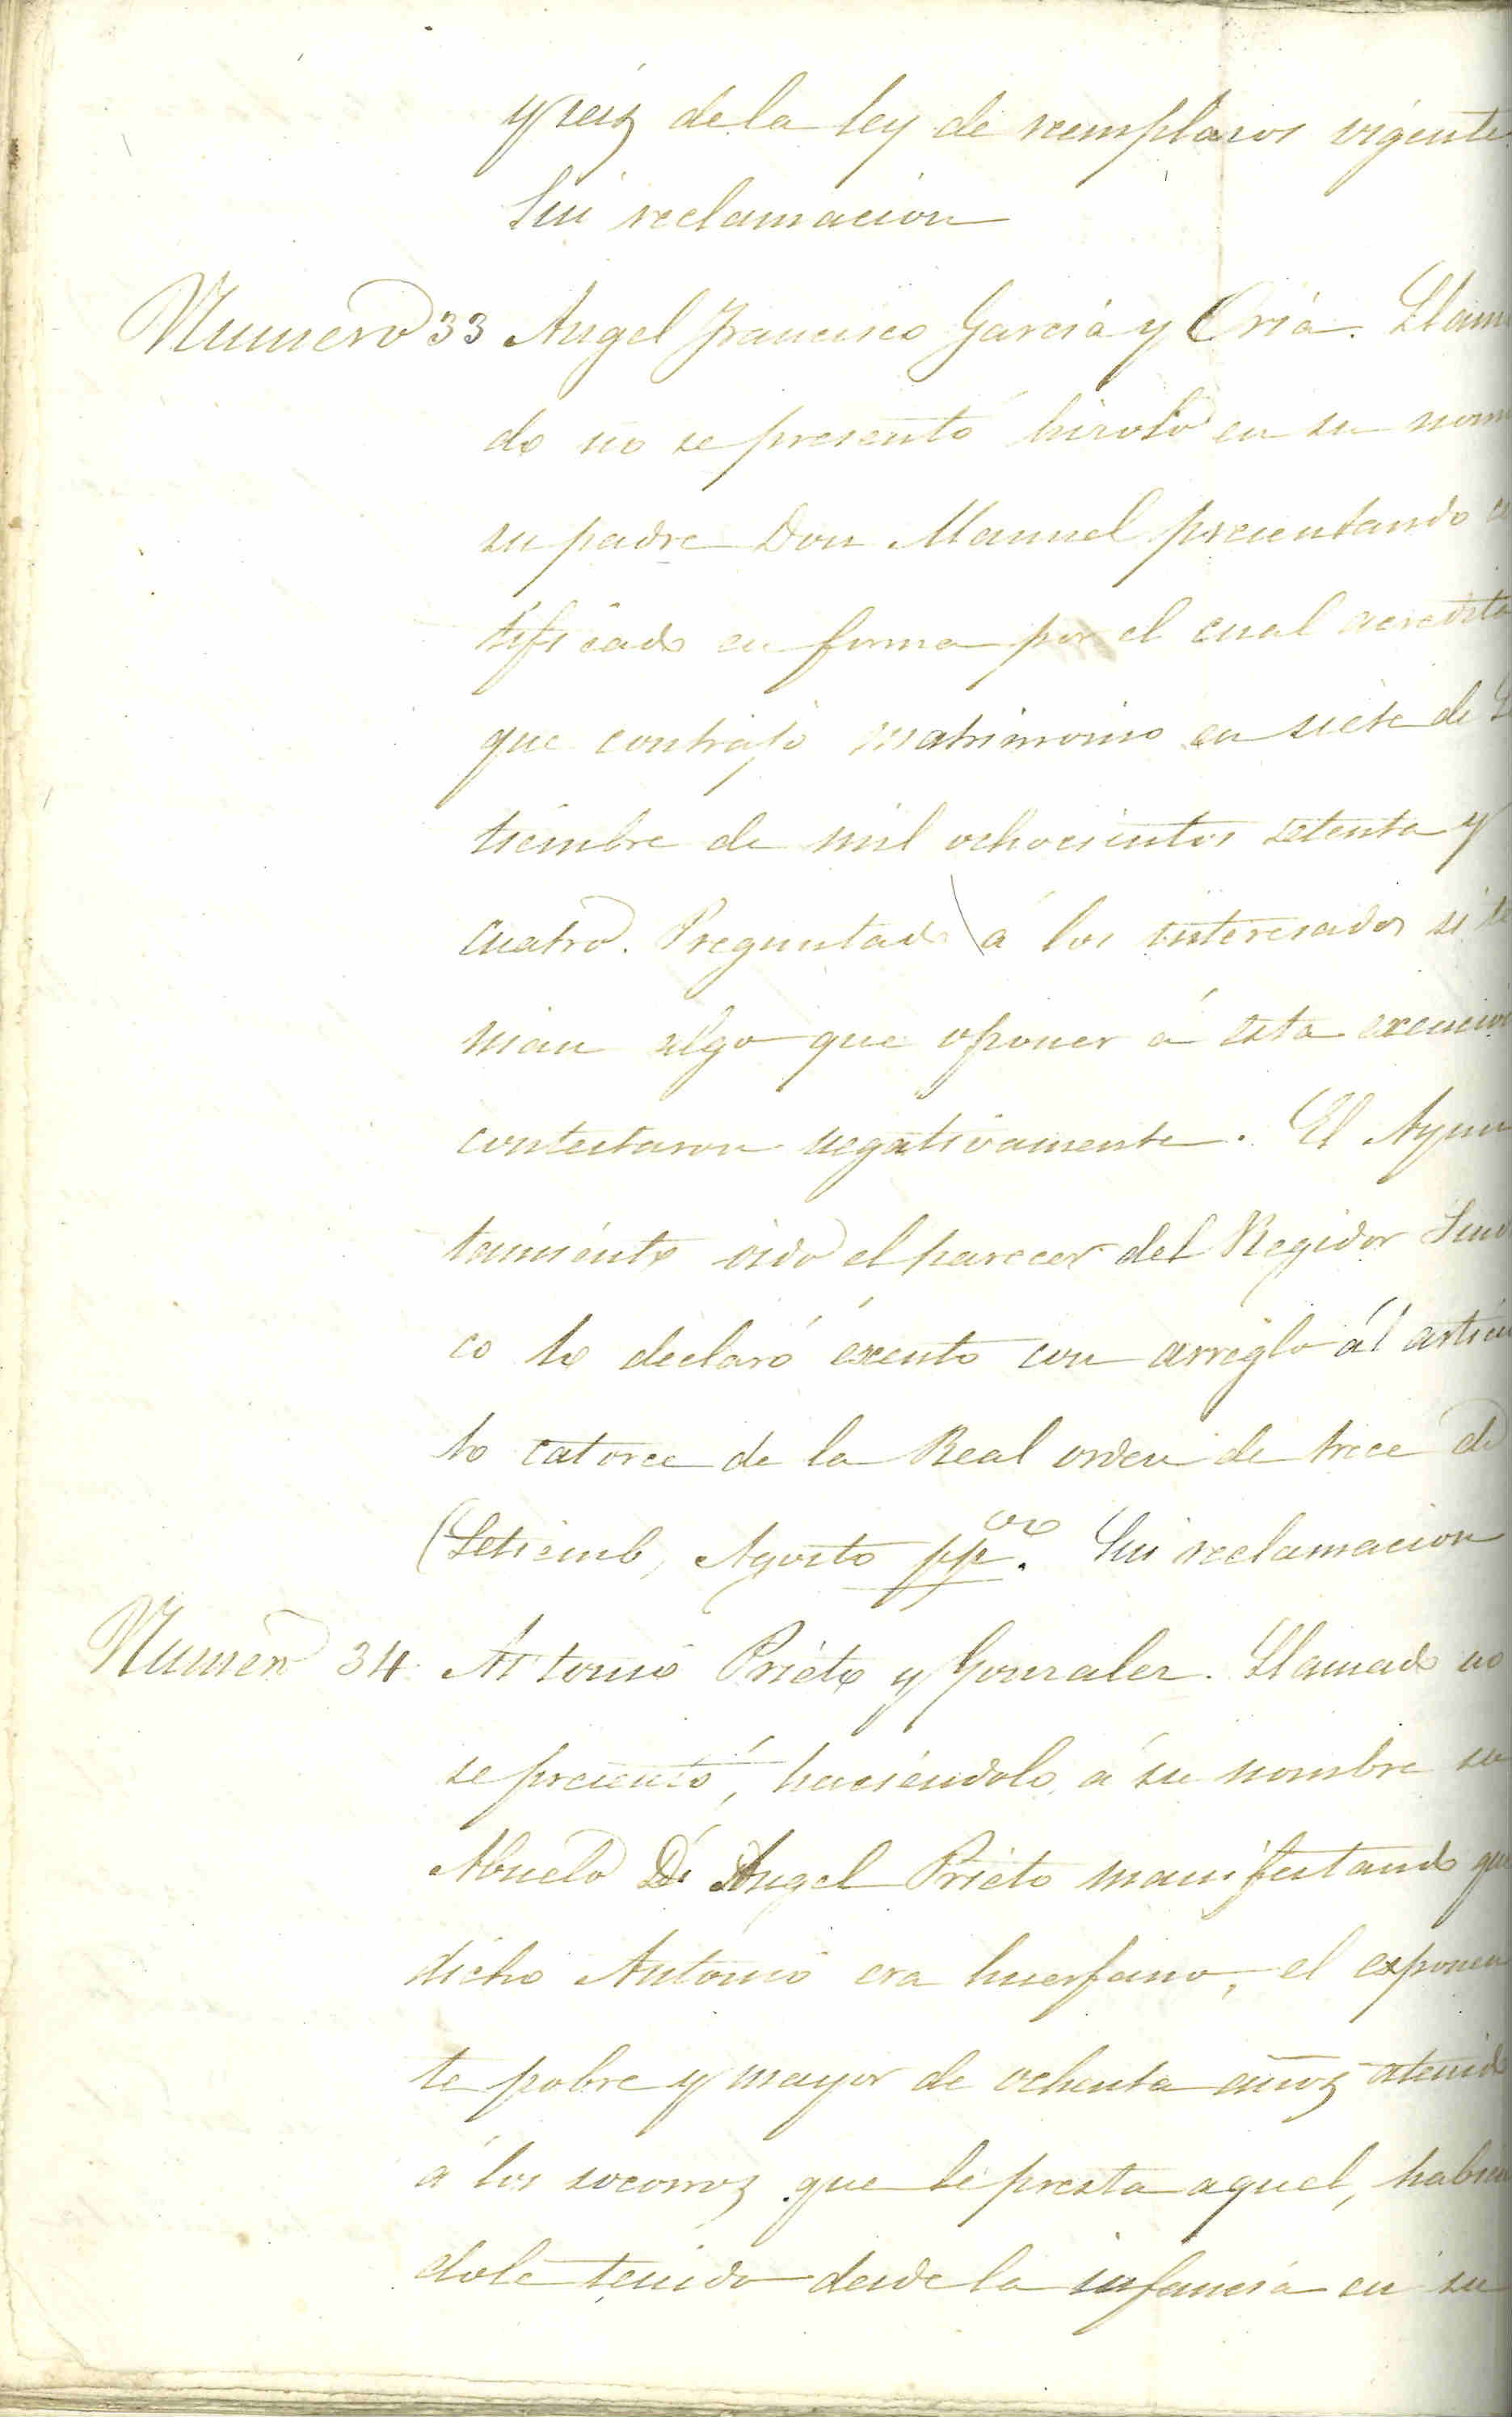 y seis de la ley de reemplasos vigente
Sin reclamacion
Numero 33 Angel Francisco Garcia y Oria. Llama
do no se presentó hizolo en su nom
su padre Don Manuel presentando ce
tificado en forma por el cual acredita
que contrajo matrimonio en siete de Se
tiembre de mil ochocientos setenta y
cuatro. Preguntado á los interesados si te
nian algo que oponer á esta exencion
contestaron negativamente. El Ayun
tamiento oido el parecer del Regidor Sindi
co lo declaró exento con arreglo al articu
lo catorce de la Real orden de trece de
(Setiemb, Agosto pp.º Sin reclamacion
Numero 34 Antonio Prieto y Gonzalez. Llamado no
se presentó, haciéndolo á su nombre su
Abuelo Dn Angel Prieto manifestando que
dicho Antonio era huerfano, el exponen
te pobre y mayor de ochenta años atenido
á los socorros que le presta aquel, habien
dole tenido desde la infancia en su